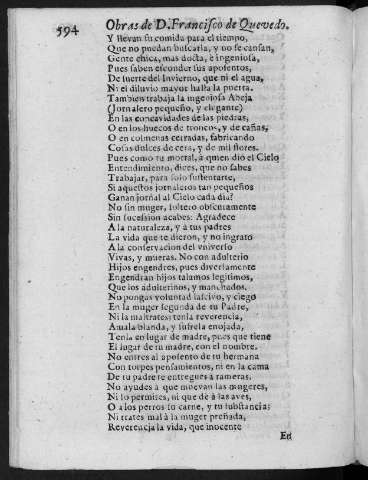 594 Obras de D. Francisco de Quevedo.
Y llevan su comida para el tiempo,
Que no puedan buscarla, y no se cansan,
Gente chica, mas docta, è ingeniosa,
Pues saben esconder sus aposentos,
De suerte del Invierno, que ni el agua,
Ni el diluvio mayor halla la puerta.
Tambien trabaja la ingeniosa Abeja
(Jornalero pequeño, y elegante)
En las concavidades de las piedras,
O en los huecos de troncos, y de cañas,
O en colmenas cerradas, fabricando
Cosas dulces de cera, y de mil flores.
Pues como tu mortal, à quien dió el Cielo
Entendimiento, dices, que no sabes
Trabajar, para solo sustentarte,
Si aquestos jornaleros tan pequeños
Ganan jornal al Cielo cada dia?
No sin muger, soltero obscuramente
Sin sucession acabes: Agradece
A la naturaleza, y à tus padres
La vida que te dieron, y no ingrato
A la conservacion del vniverso
Vivas, y mueras. No con adulterio
Hijos engendres, pues diversamente
Engendran hijos talamos legitimos,
Que los adulterinos, y manchados.
No pongas voluntad lascivo, y ciego
En la muger segunda de tu Padre,
Ni la maltrates: tenla reverencia,
Amala blanda, y sufrela enojada,
Tenla en lugar de madre, pues que tiene
El lugar de tu madre, con el nombre.
No entres al aposento de tu hermana
Con torpes pensamientos, ni en la cama
De tu padre te entregues à rameras.
No ayudes à que muevan las mugeres,
Ni lo permitas, ni que dè à las aves,
O à los perros su carne, y tu substancia;
Ni trates mal à la muger preñada,
Reverencia la vida, que inocente
En